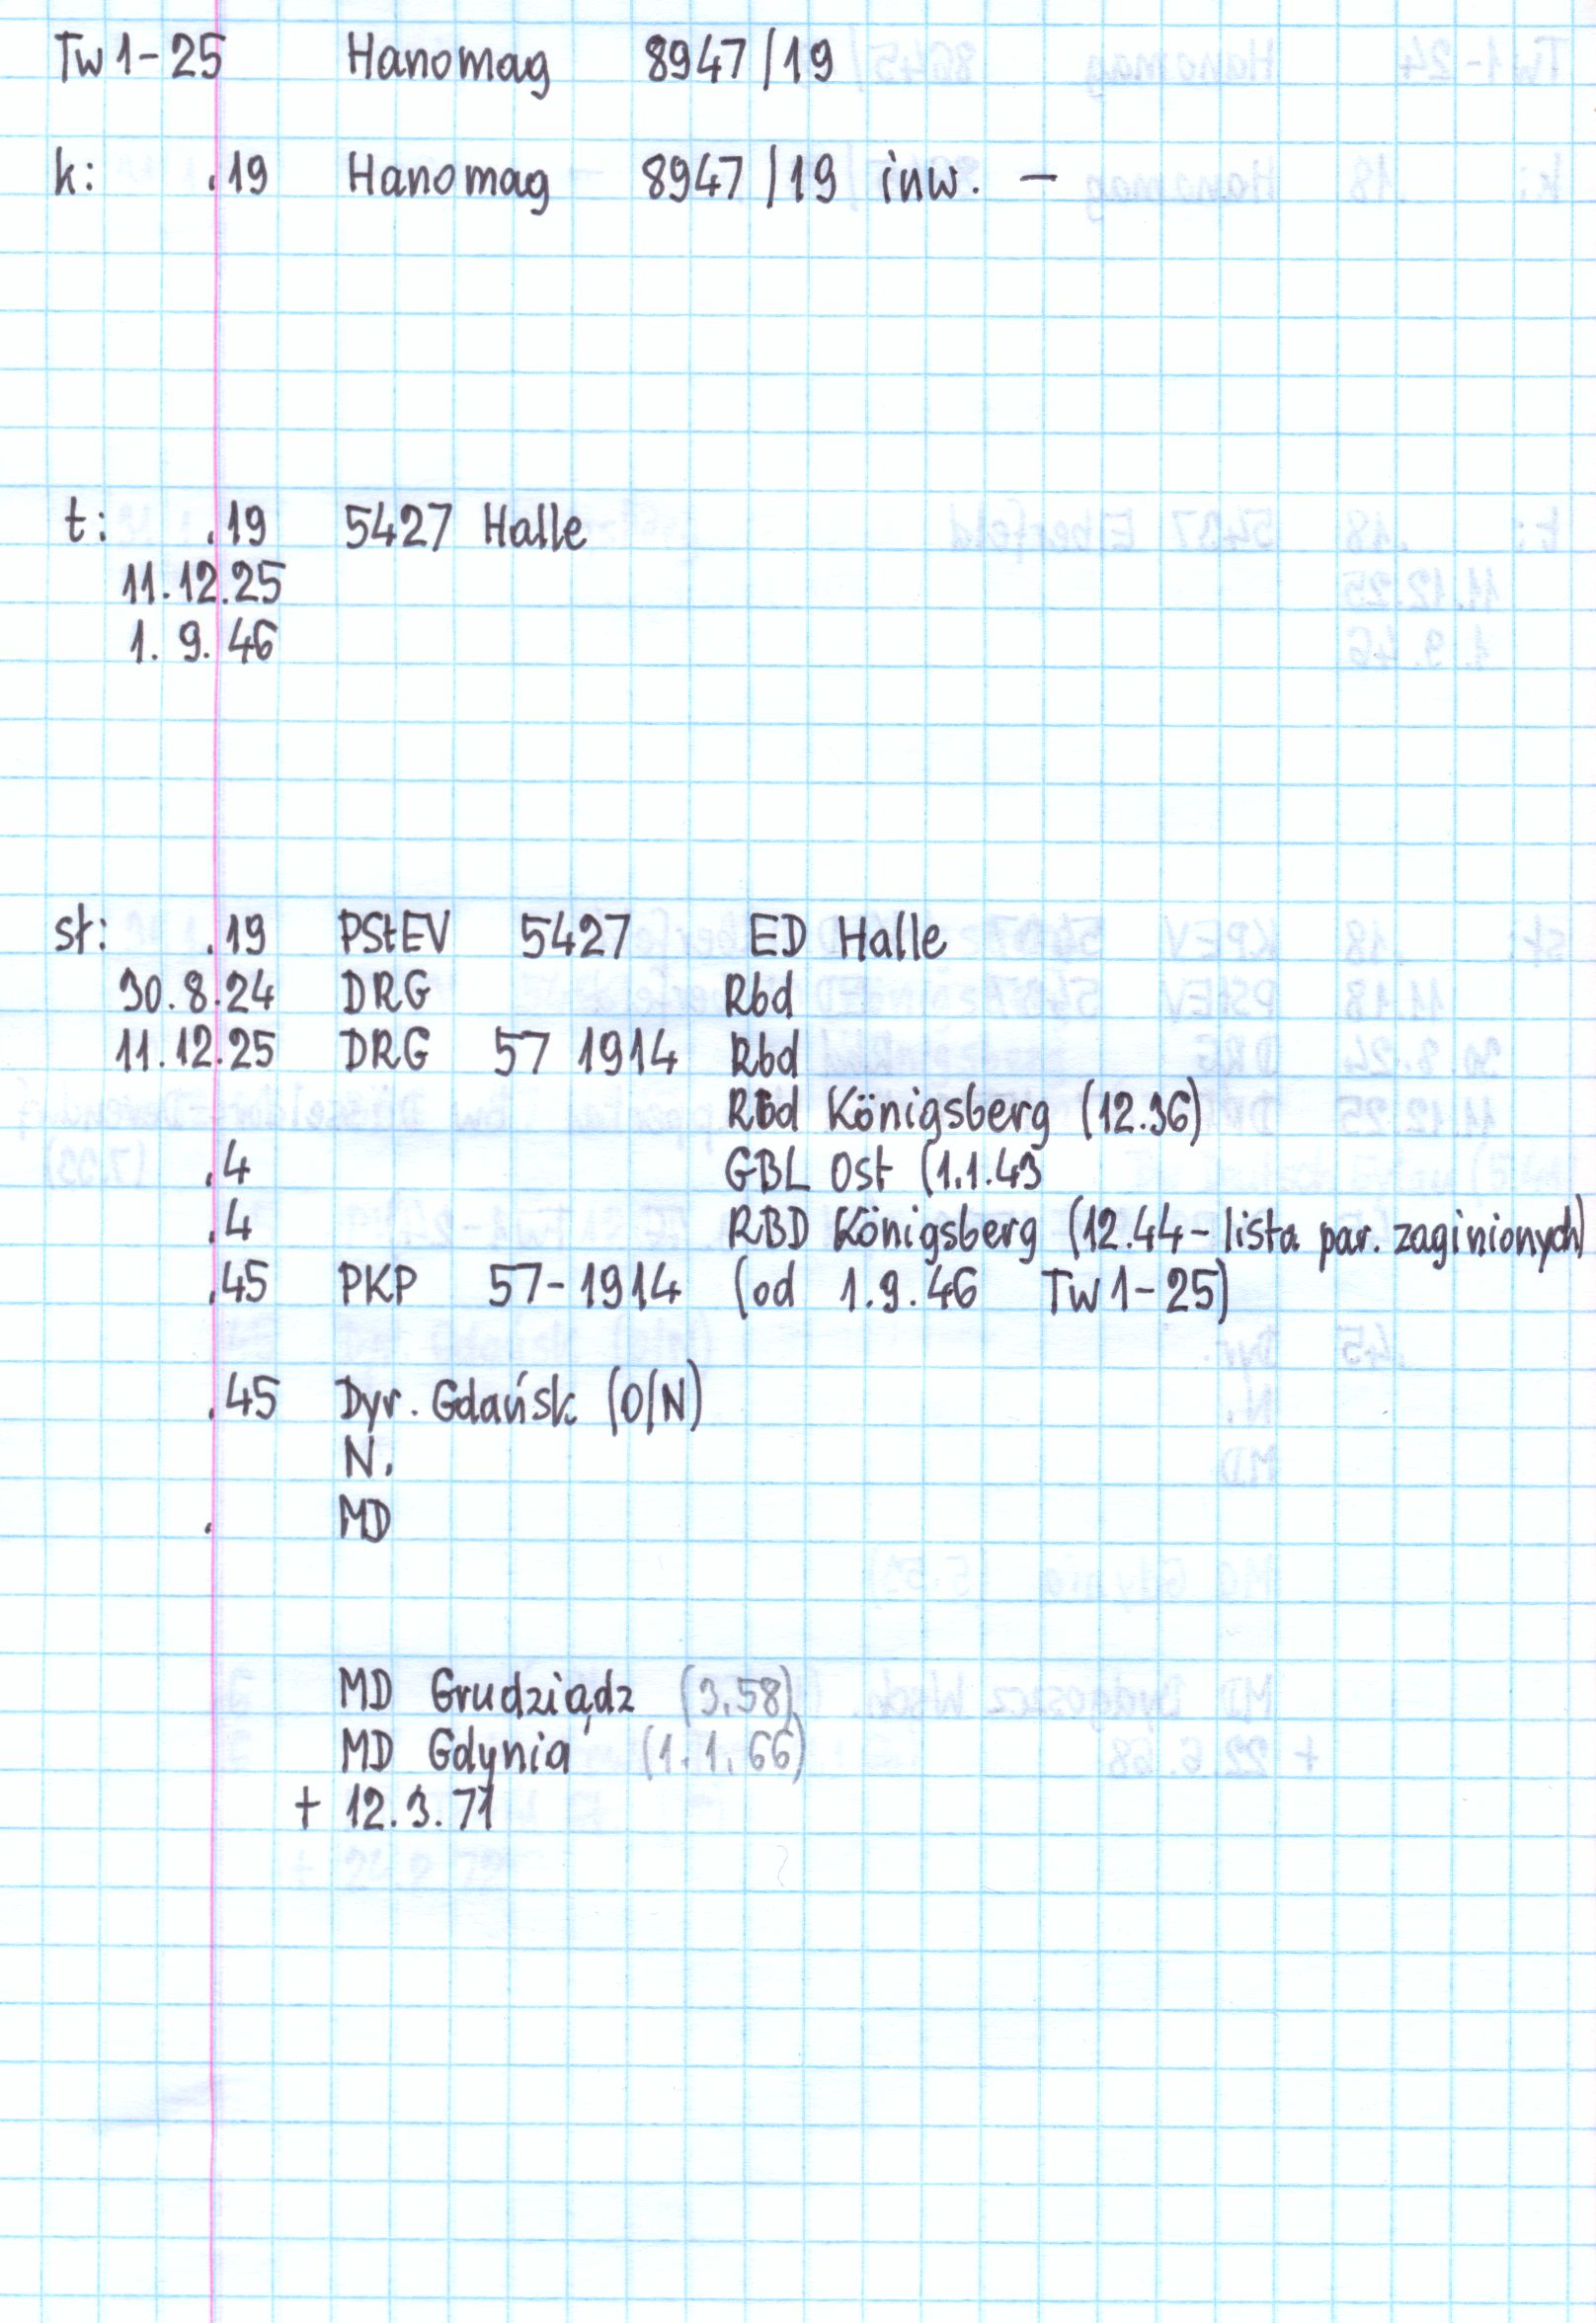 Tw 1-25 Hanomag 8947/19
k: .19 Hanomag 8947/19 inw. –
t: .19 5427 Halle
11.12.25
1.9.46
st: .19 PStEV 5427 ED Halle
30.8.24 DRG Rbd
11.12.25 DRG 57 1914 Rbd
Rbd Königsberg (12.36)
.4 GBL Ost (1.1.43
.4 RBD Königsberg (12.44 - lista par. zaginionych)
.45 PKP 57-1914 (od 1.9.46 Tw 1-25)
.45 Dyr. Gdańsk (O/N)
N.
. MD
MD Grudziądz (3.58)
MD Gdynia (1.1.66)
+ 12.3.71